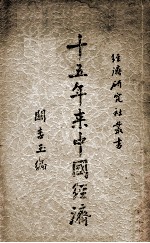 經濟研究社叢書
十五年來中國經濟
關吉玉編